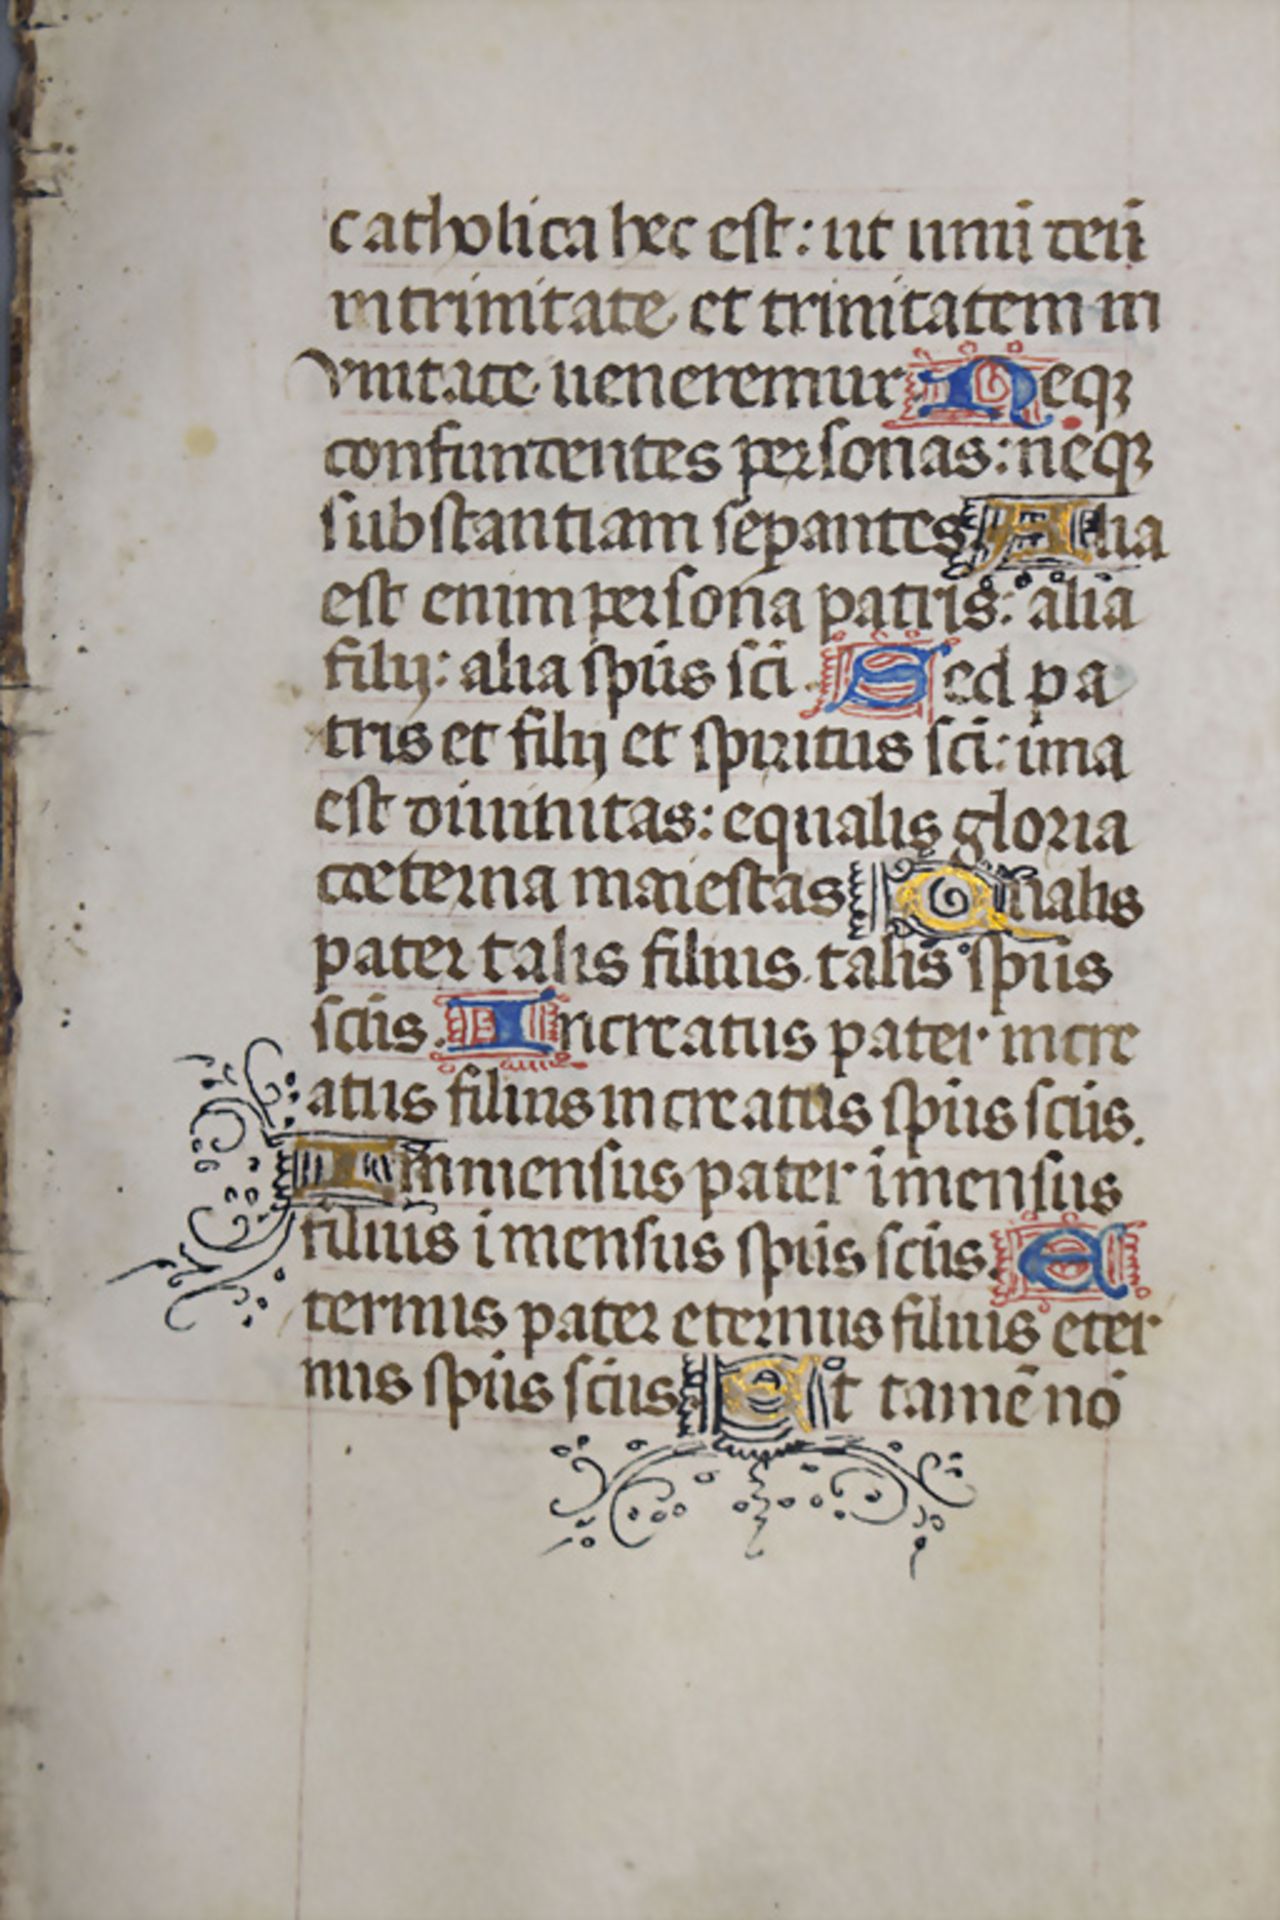 catholica hec est: ut unū deū
in trinitate et trinitatem in
vnitate ueneremur Neqꝫ
confundentes personas: neqꝫ
substantiam seꝑantes. Alia
est enim persona patris: alia
filij: alia sp̄us sc̄i. Sed pa
tris et filij et spiritus sc̄i: una
est diuinitas: equalis gloria
coeterna maiestas Qualis
pater talis filius. talis sp̄us
sc̄us. Increatus pater incre
atus filius increatus sp̄us sc̄us.
Immensus pater īmensus
filius īmensus sp̄us sc̄us. E
ternus pater eternus filius eter
nus sp̄us sc̄us. Et tamē nō